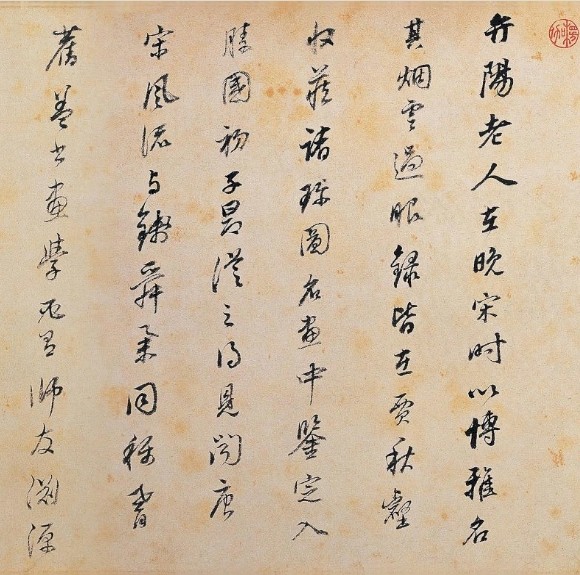 弁陽老人在晚宋時以博雅名
其烟雲過眼錄皆在賈秋壑
收藏諸珍圖名畫中鑒定入
勝國初子昂從之得見聞唐
宋風流与錢舜舉同稱耆
舊蓋書畫學必有師友淵源